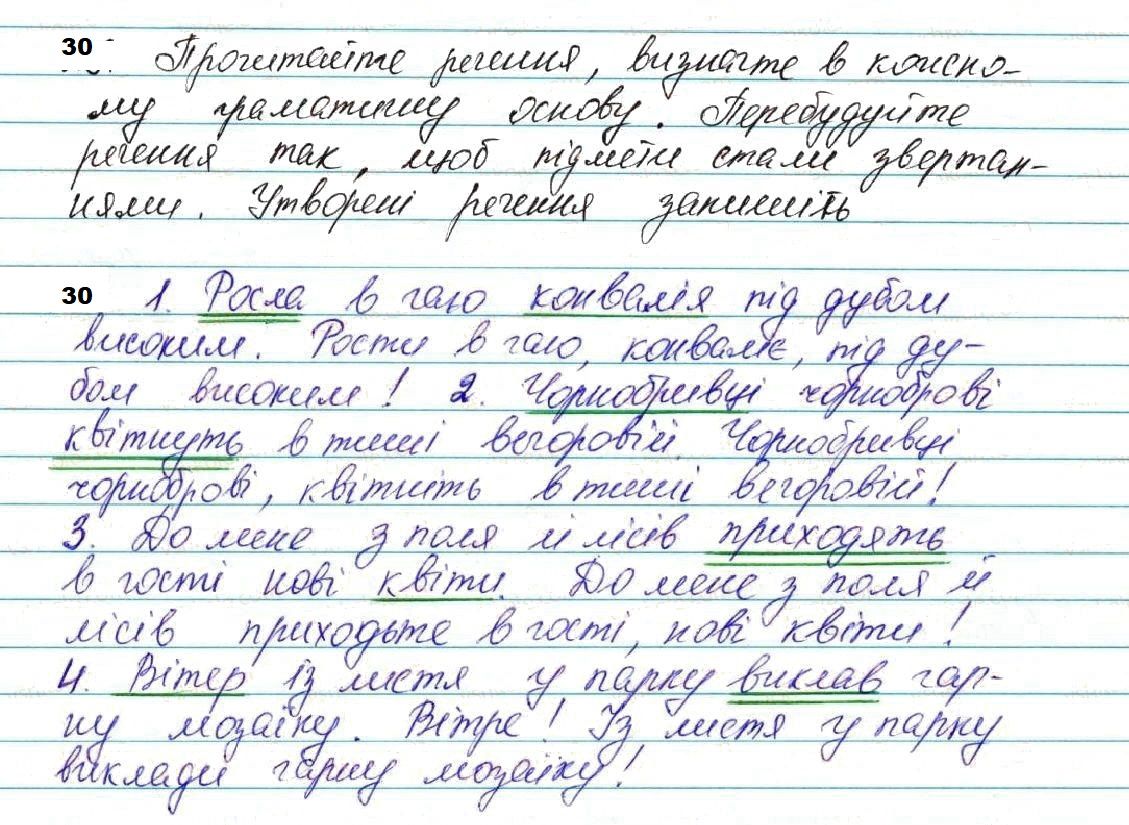 30 Прочитайте речення, визначте в кожно-
му граматичну основу. Перебудуйте
речення так, щоб підмети стали звертан-
нями. Утворені речення запишіть
30 1. Росла в гаю конвалія під дубом
високим. Рости в гаю, конваліє, під ду-
бом високим! 2. Чорнобривці чорноброві
квітнуть в тиші вечоровій. Чорнобривці
чорноброві, квітніть в тиші вечоровій!
3. До мене з поля й лісів приходять
в гості нові квіти. До мене з поля й
лісів приходьте в гості, нові квіти!
4. Вітер із листя у парку виклав гар-
ну мозаїку. Вітре! Із листя у парку
виклади гарну мозаїку!